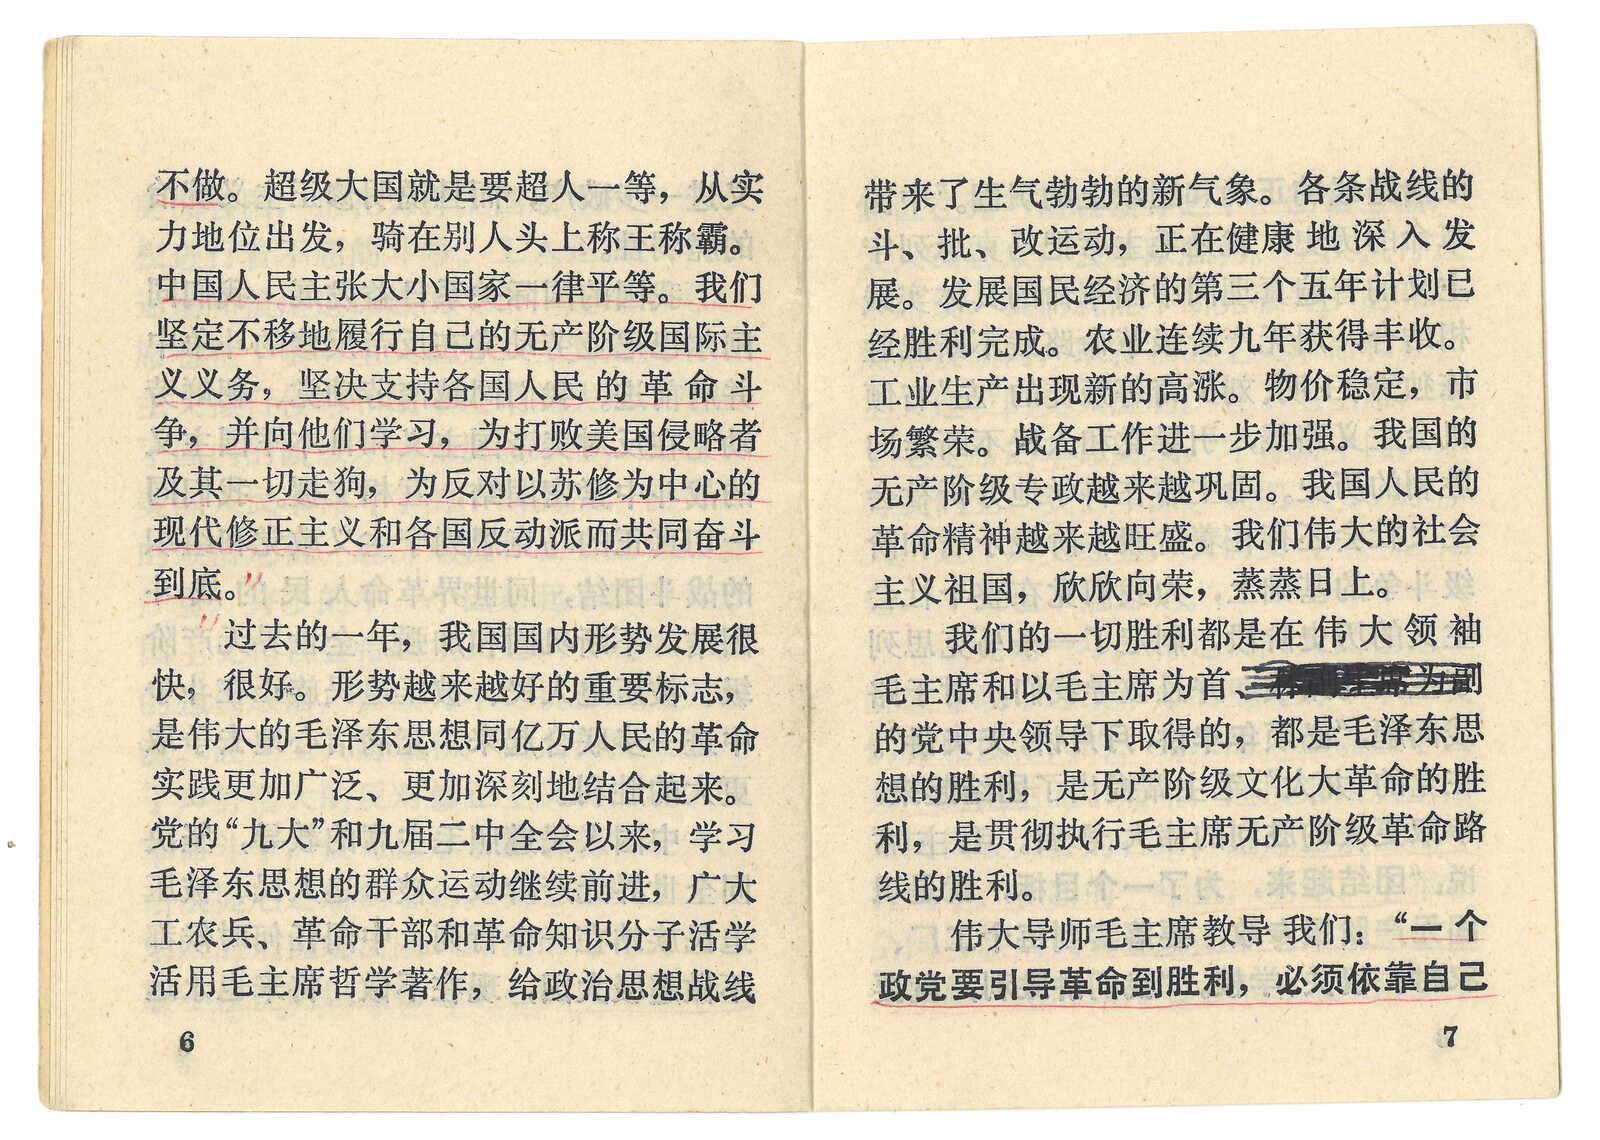 不做。超级大国就是要超人一等，从实
力地位出发，骑在别人头上称王称霸。
中国人民主张大小国家一律平等。我们
坚定不移地履行自己的无产阶级国际主
义义务，坚决支持各国人民的革命斗
争，并向他们学习，为打败美国侵略者
及其一切走狗，为反对以苏修为中心的
现代修正主义和各国反动派而共同奋斗
到底。”
“过去的一年，我国国内形势发展很
快，很好。形势越来越好的重要标志，
是伟大的毛泽东思想同亿万人民的革命
实践更加广泛、更加深刻地结合起来。
党的“九大”和九届二中全会以来，学习
毛泽东思想的群众运动继续前进，广大
工农兵、革命干部和革命知识分子活学
活用毛主席哲学著作，给政治思想战线
6
带来了生气勃勃的新气象。各条战线的
斗、批、改运动，正在健康地深入发
展。发展国民经济的第三个五年计划已
经胜利完成。农业连续九年获得丰收。
工业生产出现新的高涨。物价稳定，市
场繁荣。战备工作进一步加强。我国的
无产阶级专政越来越巩固。我国人民的
革命精神越来越旺盛。我们伟大的社会
主义祖国，欣欣向荣，蒸蒸日上。
我们的一切胜利都是在伟大领袖
毛主席和以毛主席为首、为副
的党中央领导下取得的，都是毛泽东思
想的胜利，是无产阶级文化大革命的胜
利，是贯彻执行毛主席无产阶级革命路
线的胜利。
伟大导师毛主席教导我们：“一个
政党要引导革命到胜利，必须依靠自己
7